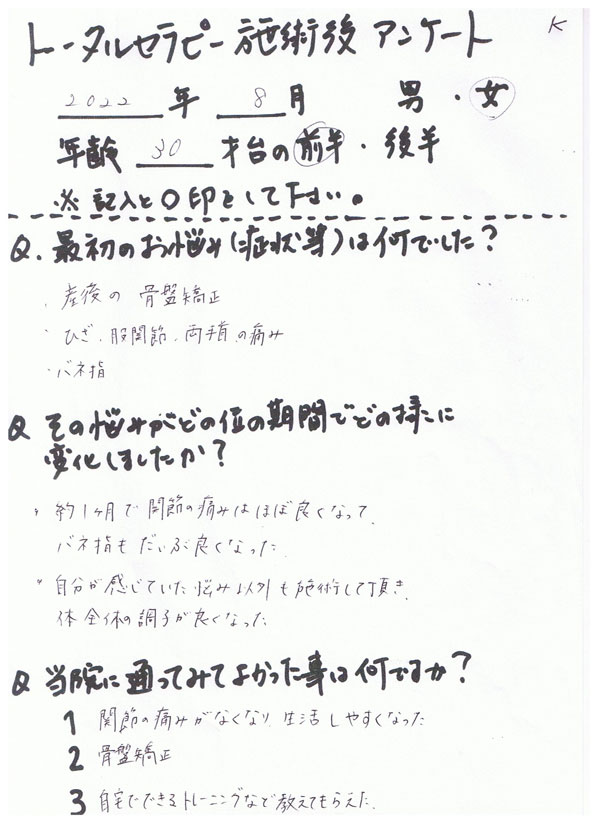 K
トータルセラピー施術後アンケート
2022年 8月 男・女
年齢 30 才台の前半・後半
※記入と○印をして下さい。
Q.最初のお悩み(症状等)は何でした？
・産後の骨盤矯正
・ひざ、股関節、両手首の痛み
・バネ指
Q その悩みがどの位の期間でどの様に
変化しましたか？
・約1ヶ月で関節の痛みはほぼ良くなって、
バネ指もだいぶ良くなった。
・自分が感じていた悩み以外も施術して頂き、
体全体の調子が良くなった
Q 当院に通ってみてよかった事は何ですか？
1 関節の痛みがなくなり、生活しやすくなった
2 骨盤矯正
3 自宅でできるトレーニングなど教えてもらえた.